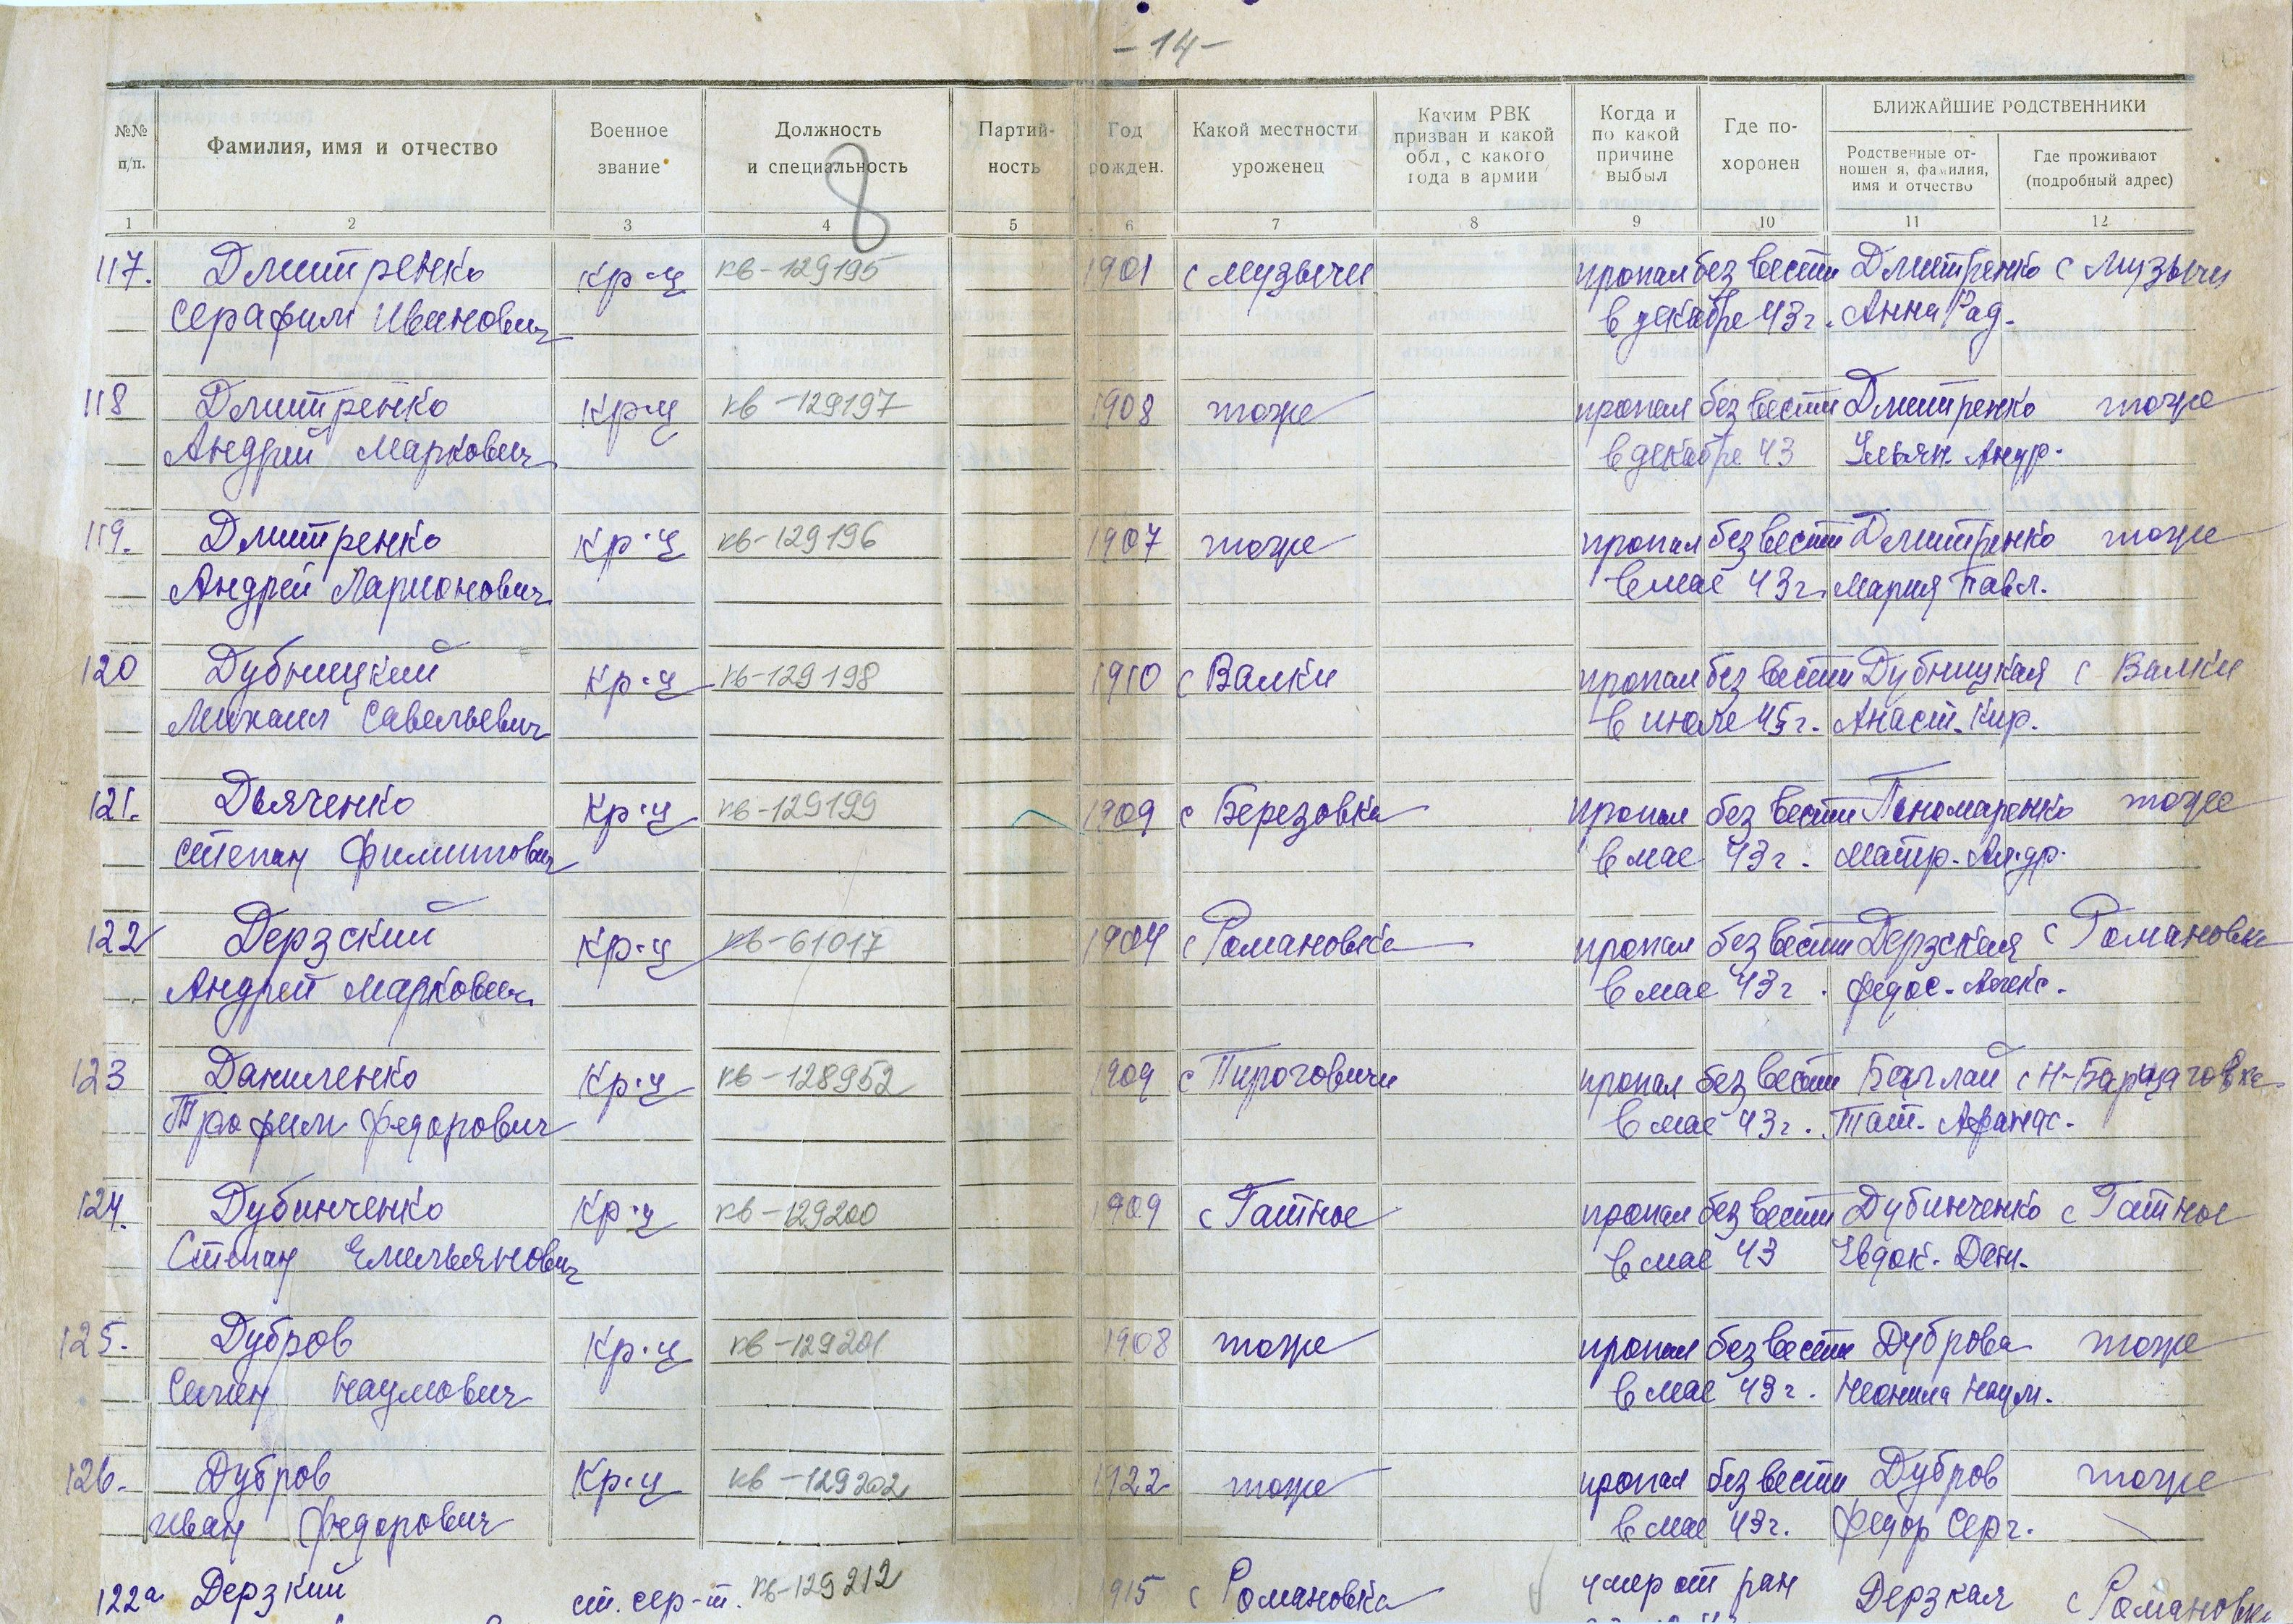 - 14 -
№№ п/п.
Фамилия, имя и отчество
Военное звание
Должность и специальность
Партий-ность
Год рожден.
Какой местности уроженец
Каким РВК призван и какой обл, с какого года в армии
Когда и по какой причине выбыл
Где по-хоронен
БЛИЖАЙШИЕ РОДСТВЕННИКИ
Родственные от-ношен я, фамилия, имя и отчество
Где проживают (подробный адрес)
8
1 2 3 4 5 6 7 8 9 10 11 12
117. Дмитренко кр-ц кв-129195 1901 с музычи пропал без вести Дмитренко с Музычи
Серафим Иванович в декабре 43 г. Анна Рад.
118 Дмитренко кр-ц кв-129197 1908 тоже пропал без вести Дмитренко тоже
Андрей Маркович в декабре 43 Ульян. Андр.
119. Дмитренко кр-ц кв-129196 1907 тоже пропал без вести Дмитренко тоже
Андрей Ларионович в мае 43 г. Мария Павл.
120 Дубницкий кр-ц кв-129198 1910 с Валки пропал без вести Дубницкая с Валки
Михаил Савельевич в июле 45 г. Анаст. Кир.
121. Дьяченко кр-ц кв-129199 1909 с Березовка пропал без вести Пономаренко тоже
Степан Филиппович в мае 43 г. Матр. Андр.
122 Дерзский кр-ц кв-61017 1904 с Романовка пропал без вести Дерзская с Романовка
Андрей Маркович в мае 43 г. Федос. Алекс.
123 Даниленко кр-ц кв-128952 1909 с Пироговичи пропал без вести Баглай с Н-
Трофим Федорович в мае 43 г. Тат. Афанас.
124. Дубинченко кр-ц кв-129200 1909 с Гатное пропал без вести Дубинченко с Гатное
Степан Емельянович в мае 43 Евдок. Дан.
125. Дубров кр-ц кв-129201 1908 тоже пропал без вести Дуброва тоже
Наумович в мае 43 г. Неонила Наум.
126. Дубров кр-ц кв-129202 1922 тоже пропал без вести Дубров тоже
Иван Федорович в мае 43 г. Федор Серг.
122а Дерзкий ст. сер-т. кв-129212 1915 с Романовка умер от ран Дерзкая с Романовка